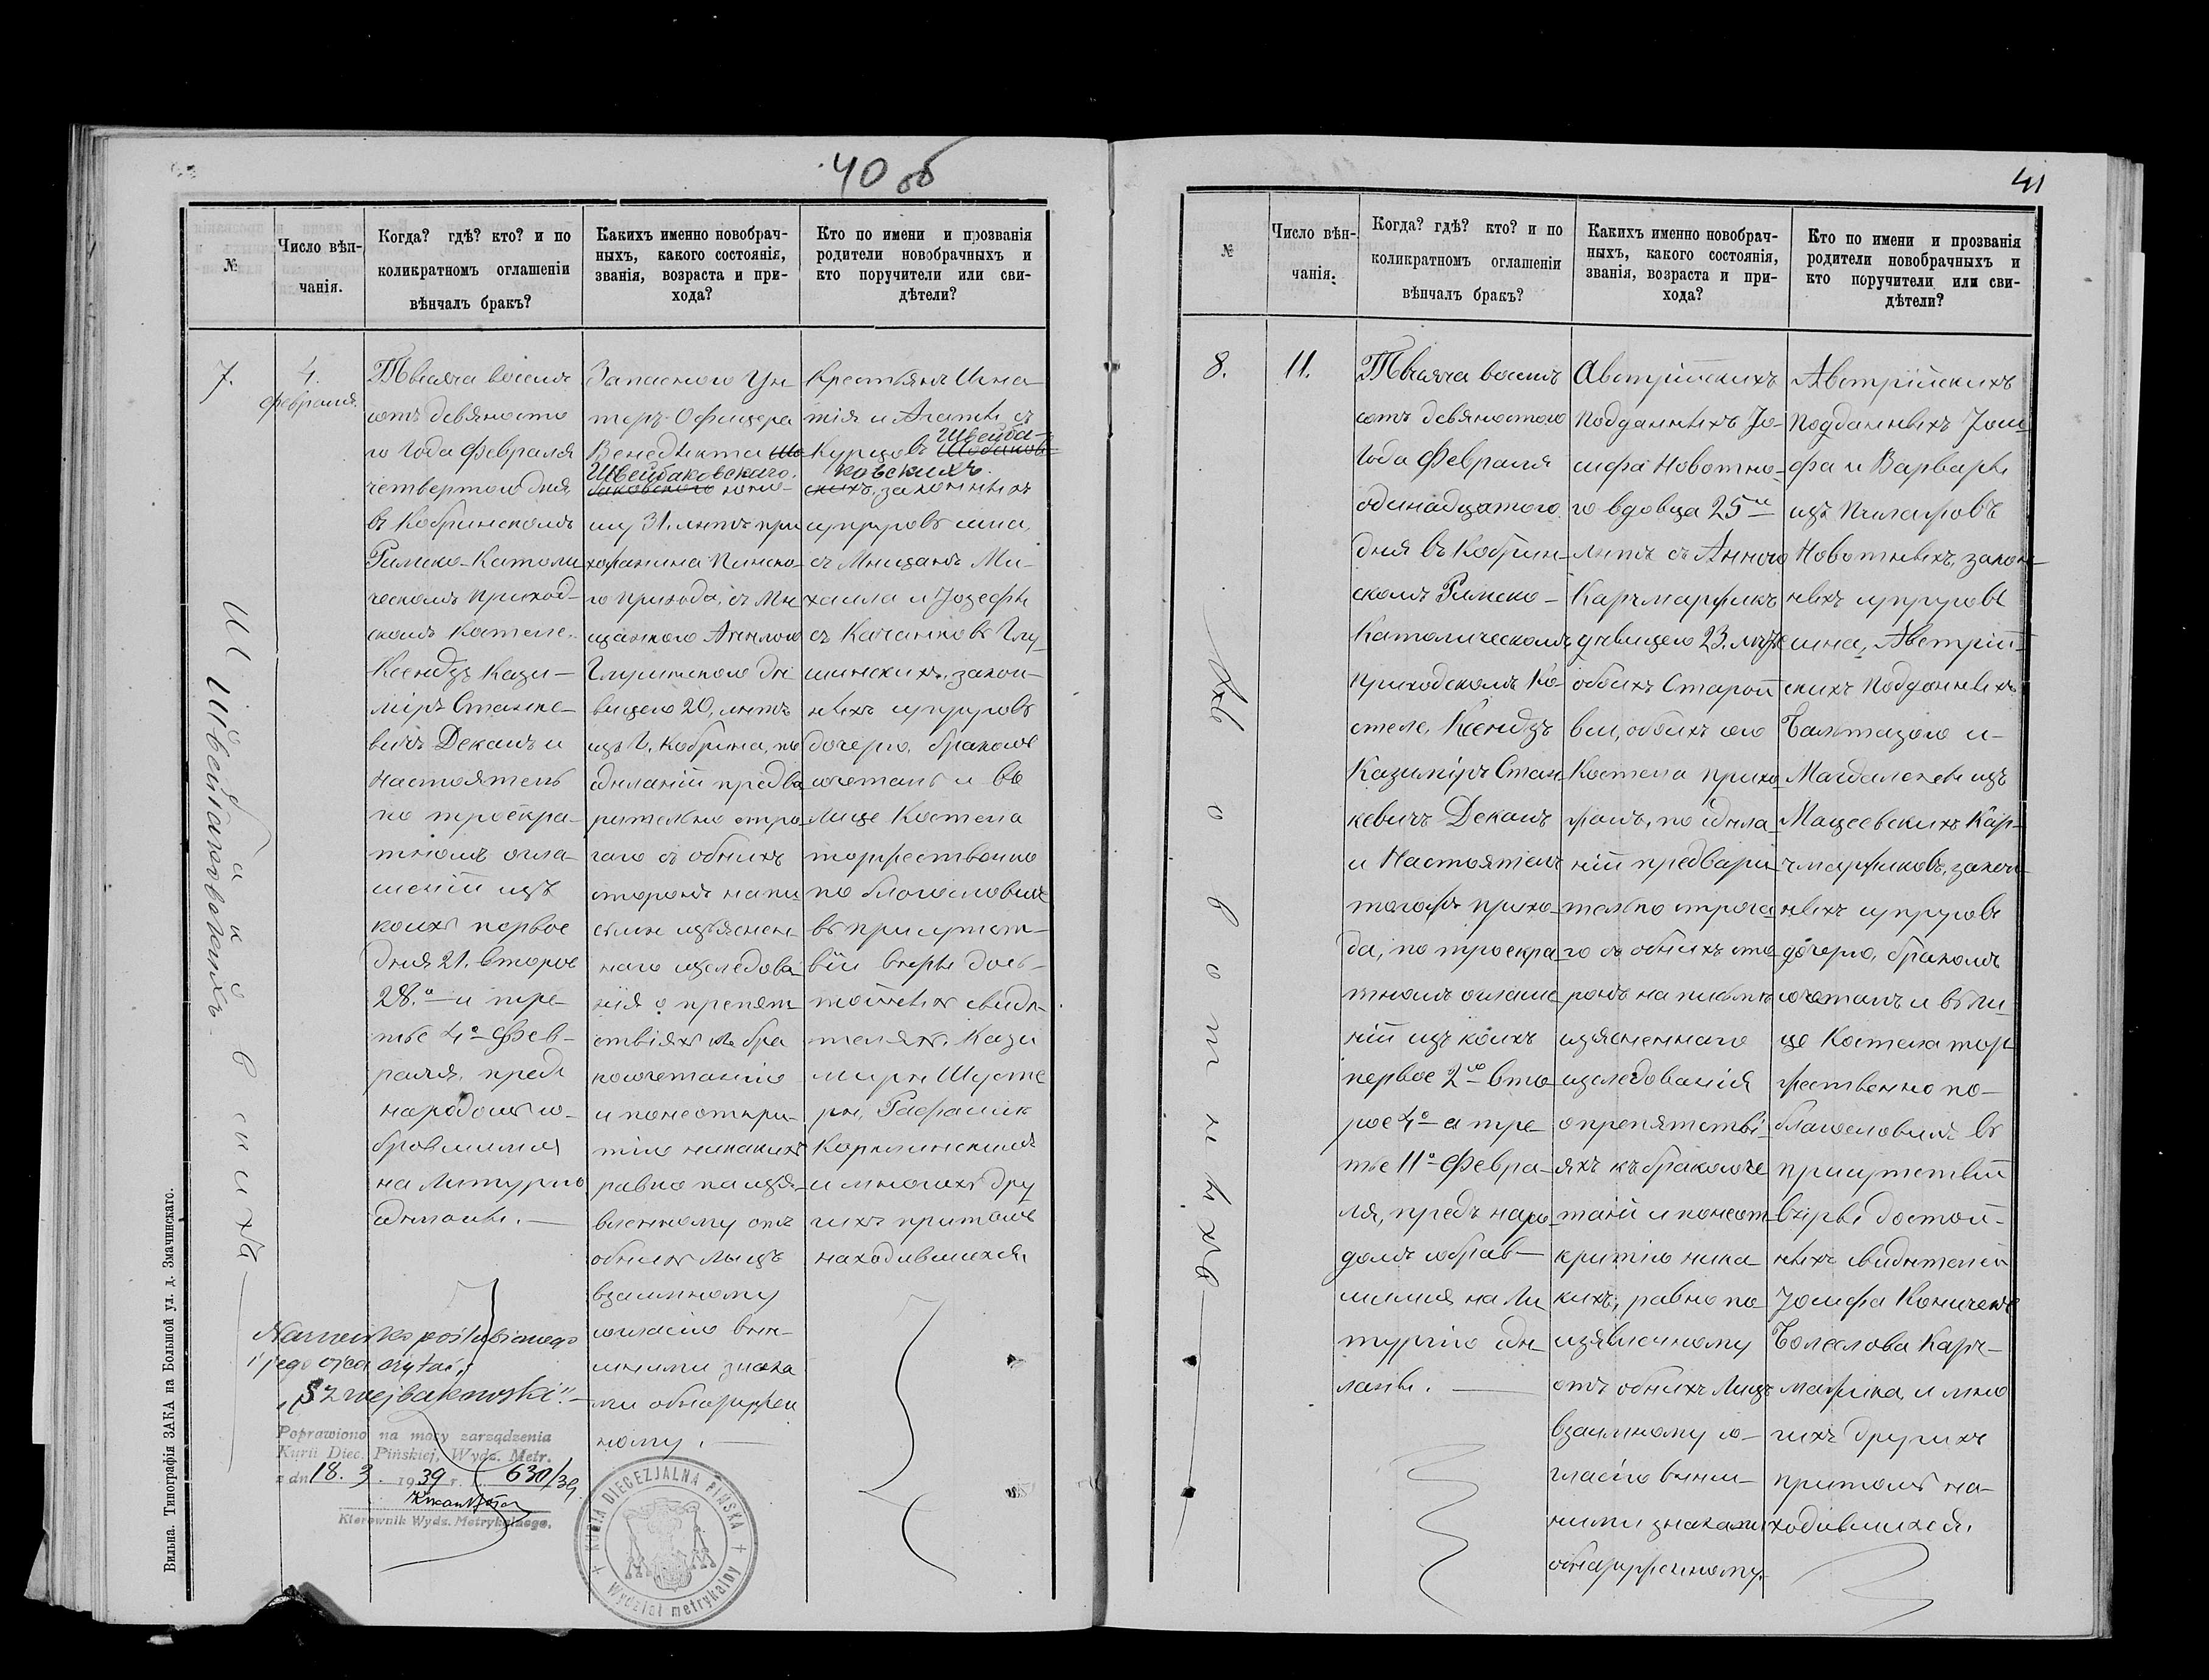 40 об
№
Число вѣнчанія.
Когда? гдѣ? кто? и по
коликратномъ оглашеніи
вѣнчалъ бракъ?
Какихъ именно новобрач-
ныхъ, какого состоянія,
званія, возраста и при-
хода?
Кто по имени и прозванія
родители новобрачныхъ и
кто поручители или сви-
дѣтели?
7.
4.
февраля.
Тысяча восемь
сотъ девяносто
го Года Февраля
четвертого дня
въ Кобринскомъ
Римско-Католи
ческомъ приход-
скомъ Костеле.
Ксендзъ Кази-
міръ Станке-
вичъ Деканъ и
Настоятель
по троекра-
тномъ огла-
шеніи изъ
коихъ первое
дня 21. второе
28.о и тре-
тье 4о Фев-
раля, предъ
народомъ со-
бравшимся
на Литургію
сдѣланы.
Запасного Ун-
теръ-Офицера
Венедыкта
Швейбаковского
юно-
шу 31. лѣтъ при
хожанина Пинско-
го прихода, съ Мѣ
щанкою Анною
Глушинскою дѣ
вицею 20, лѣтъ
изъ Г. Кобрина, по
сдѣланіи предва
рительно стро-
гого съ обоихъ
сторонъ на пи
сьмѣ изъяснен-
наго изследова
нія о препят
ствіяхъ къ бра
косочетанію
и понеоткры-
тію никакихъ
равно по изъя-
вленному отъ
обоихъ лицъ
взаимному
согласію внѣ-
шними знака
ми обнаружен
ному.
Крестьянъ Игна-
тія и Агаты съ
Курцовъ Швейба-
ковскихъ.
законныхъ
супруговъ сына,
съ Мѣщанъ Ми-
хаила и Юзефы
съ Качанковъ Глу
шинскихъ, закон-
ныхъ супруговъ
дочерью, бракомъ
сочеталъ и въ
Лице Костела
торжественно
по благословилъ
въ присутст-
віи вѣры дос-
тойныхъ свидѣ-
телях. Кази
міры Шусте
ры, Рафаила
и многихъ дру
гихъ притомъ
находившихся.
и Швейбаковскихъ
Ш в е й б а к о в с к и х ъ
Nazwisko poślubionego
i jego ojca czytać:
„Szwejbakowski".
Poprawiono na mocy zarządzenia
Kurii Diec. Pińskiej, Wydz. Metr.
z dn 18. 3. 1939 r. 630/39
Kierownik Wydz. Metrykalnego.
KURIA DIECEZJALNA PIŃSKA
Wydział metrykalny
Вильна. Типографія ЗАКА на Большой ул. д. Змачинскаго.
41
№
Число вѣн-
чанія.
Когда? гдѣ? кто? и по
коликратномъ оглашеніи
вѣнчалъ бракъ?
Какихъ именно новобрач-
ныхъ, какого состоянія,
званія, возраста и при-
хода?
Кто по имени и прозванія
родители новобрачныхъ и
кто поручители или сви-
дѣтели?
8.
11.
Тысяча восемь
сотъ девяностого
Года Февраля
одинадцатого
дня въ Кобрин-
скомъ Римско-
Католическомъ
приходскомъ Ко-
стеле, Ксендзъ
Казиміръ Стан
кевичъ Деканъ
и Настоятель
тогожъ прихо-
да, по троекра-
тномъ оглаше
ніи изъ коихъ
первое 2го вто-
рое 4о а тре-
тье 11о Февра-
ля, предъ наро-
домъ собрав-
шимся на Ли
тургію сдѣ-
ланы.
Австрійскихъ
подданныхъ Іо-
сифа Новотно-
го вдовца 25ти
лѣтъ съ Анною
Каржмаржикъ
дѣвицею 23. лѣтъ
обоихъ
обоихъ сего
Костела прихо
жанъ, по сдѣла
ніи предвари-
тельно строга-
го съ обоихъ сто-
ронъ на письмѣ
изъясненнаго
изследованія
о препятстві-
яхъ къ бракосоче
танію и понеот-
крытію ника
кихъ, равно по
изъявленному
отъ обоихъ Лицъ
взаимному со-
гласію внѣш-
ними знаками
обнаруженному.
Австрійскихъ
Подданныхъ Іоси
фа и Варвары
изъ
Новотныхъ, закон-
ныхъ супруговъ
сына, Австрій-
скихъ Подданныхъ
и
Магдалены изъ
Мацеевскихъ Кар-
чмаржиковъ, закон-
ныхъ супруговъ
дочерью, бракомъ
сочеталъ и въ ли-
це Костела тор
жественно по-
благословилъ въ
присутствіи
вѣры достой-
ныхъ свидѣтелей
Іосифа
Болеслова Карч-
маржика и мно
гихъ другихъ
притомъ на-
ходившихся.
Н о в о т н ы х ъ